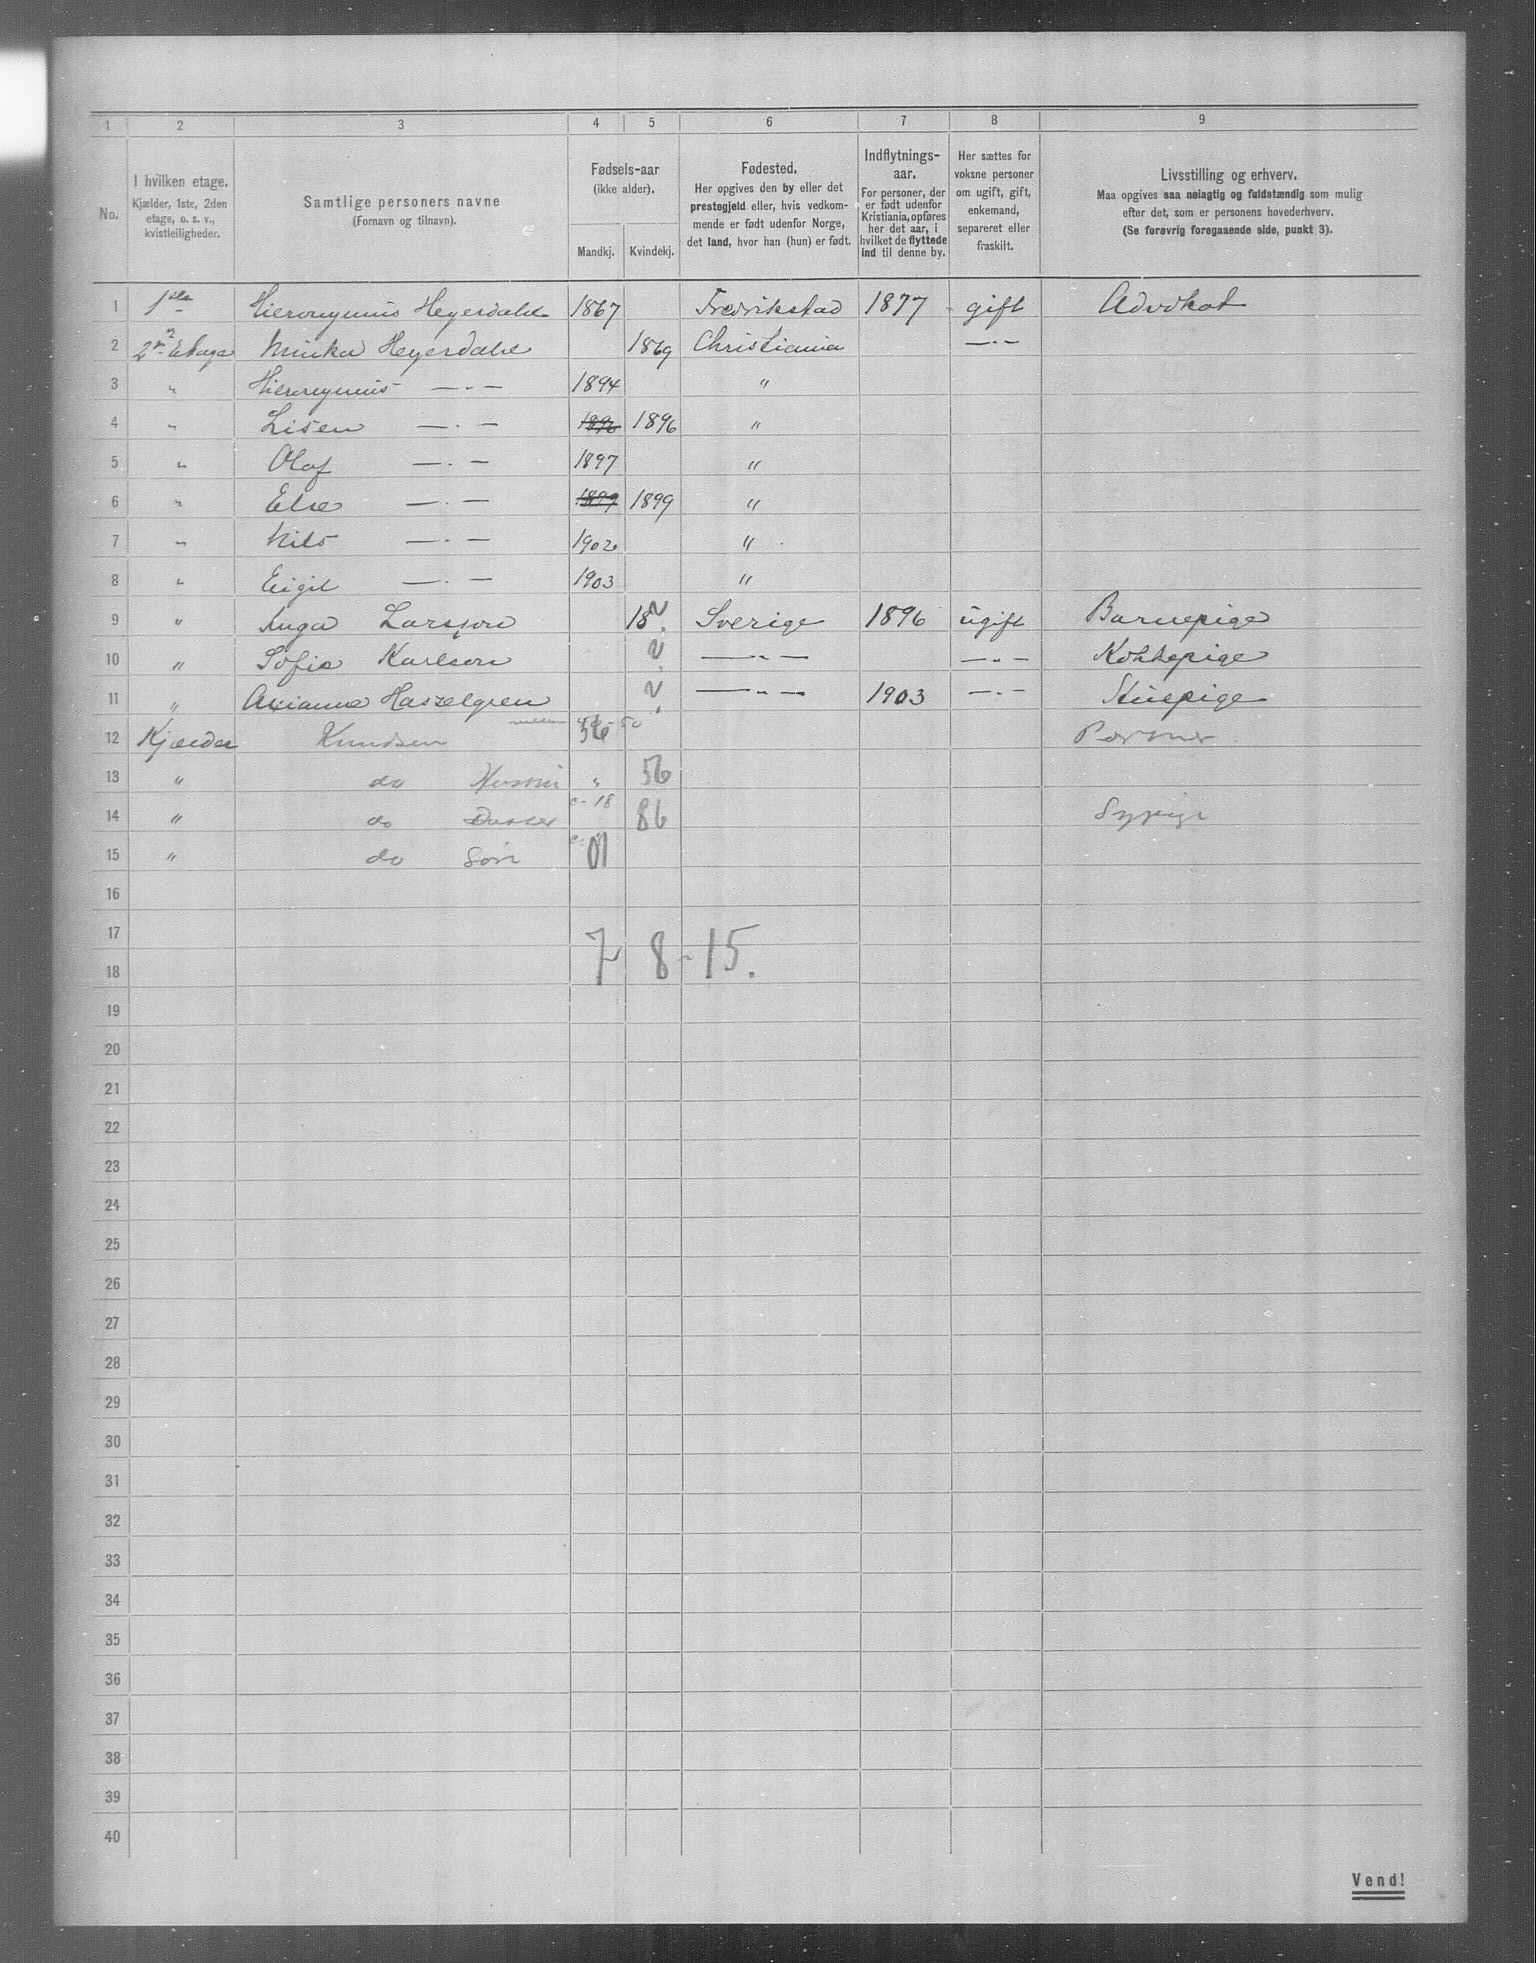 1 2 3 4 5 6 7 8 9
No.
I hvilken etage.
Kjælder, 1ste, 2den
etage, o. s. v.,
kvistleiligheder.
Samtlige personers navne
(Fornavn og tilnavn).
Fødsels-aar
(ikke alder).
Mandkj. Kvindekj.
Fødested.
Her opgives den by eller det
prestegjeld eller, hvis vedkom-
mende er født udenfor Norge,
det land, hvor han (hun) er født.
Indflytnings-
aar.
For personer, der
er født udenfor
Kristiania, opføres
her det aar, i
hvilket de flyttede
ind til denne by.
Her sættes for
voksne personer
om ugift, gift,
enkemand,
separeret eller
fraskilt.
Livsstilling og erhverv.
Maa opgives saa nøiagtig og fuldstændig som mulig
efter det, som er personens hovederhverv.
(Se forøvrig foregaaende side, punkt 3).
1 1ste Hieronymus Heyerdahl 1867 Fredrikstad 1877 gift Advokat
2 2n Etage Minka Heyerdahl 1869 Christiania —"—
3 " Hieronymus —"— 1894 "
4 " Lisen —"— 1896 1896 "
5 " Olaf —"— 1897 "
6 " Else —"— 1899 1899 "
7 " Nils —"— 1902 "
8 " Eigil —"— 1903 "
9 " Inga Larsson 18? Sverige 1896 ugift Barnepige
10 " Sofie Karlson ? —"— —"— Kokkepige
11 " Axianne Haszelgren ? —"— 1903 —"— Stuepige
12 Kjælder Knudsen mellem 50 56 Portner
13 " do Hustru " 56
14 " do Datter c. 18 86 Sypige
15 " do Søn 01
16
17
7 8 - 15.
18
19
20
21
22
23
24
25
26
27
28
29
30
31
32
33
34
35
36
37
38
39
40
Vend!